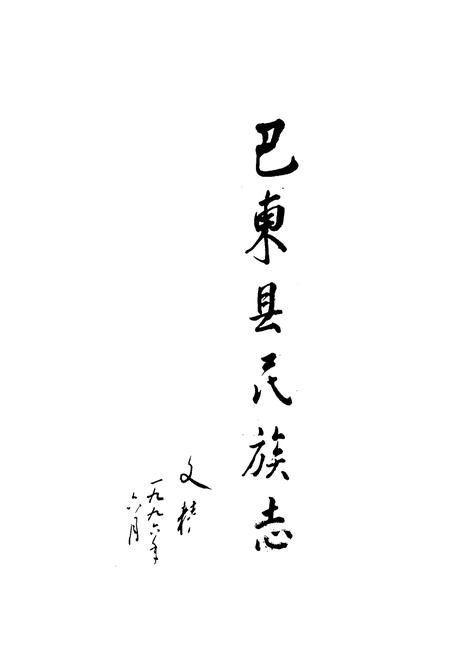 巴東县民族志
文
一九九六年
六月